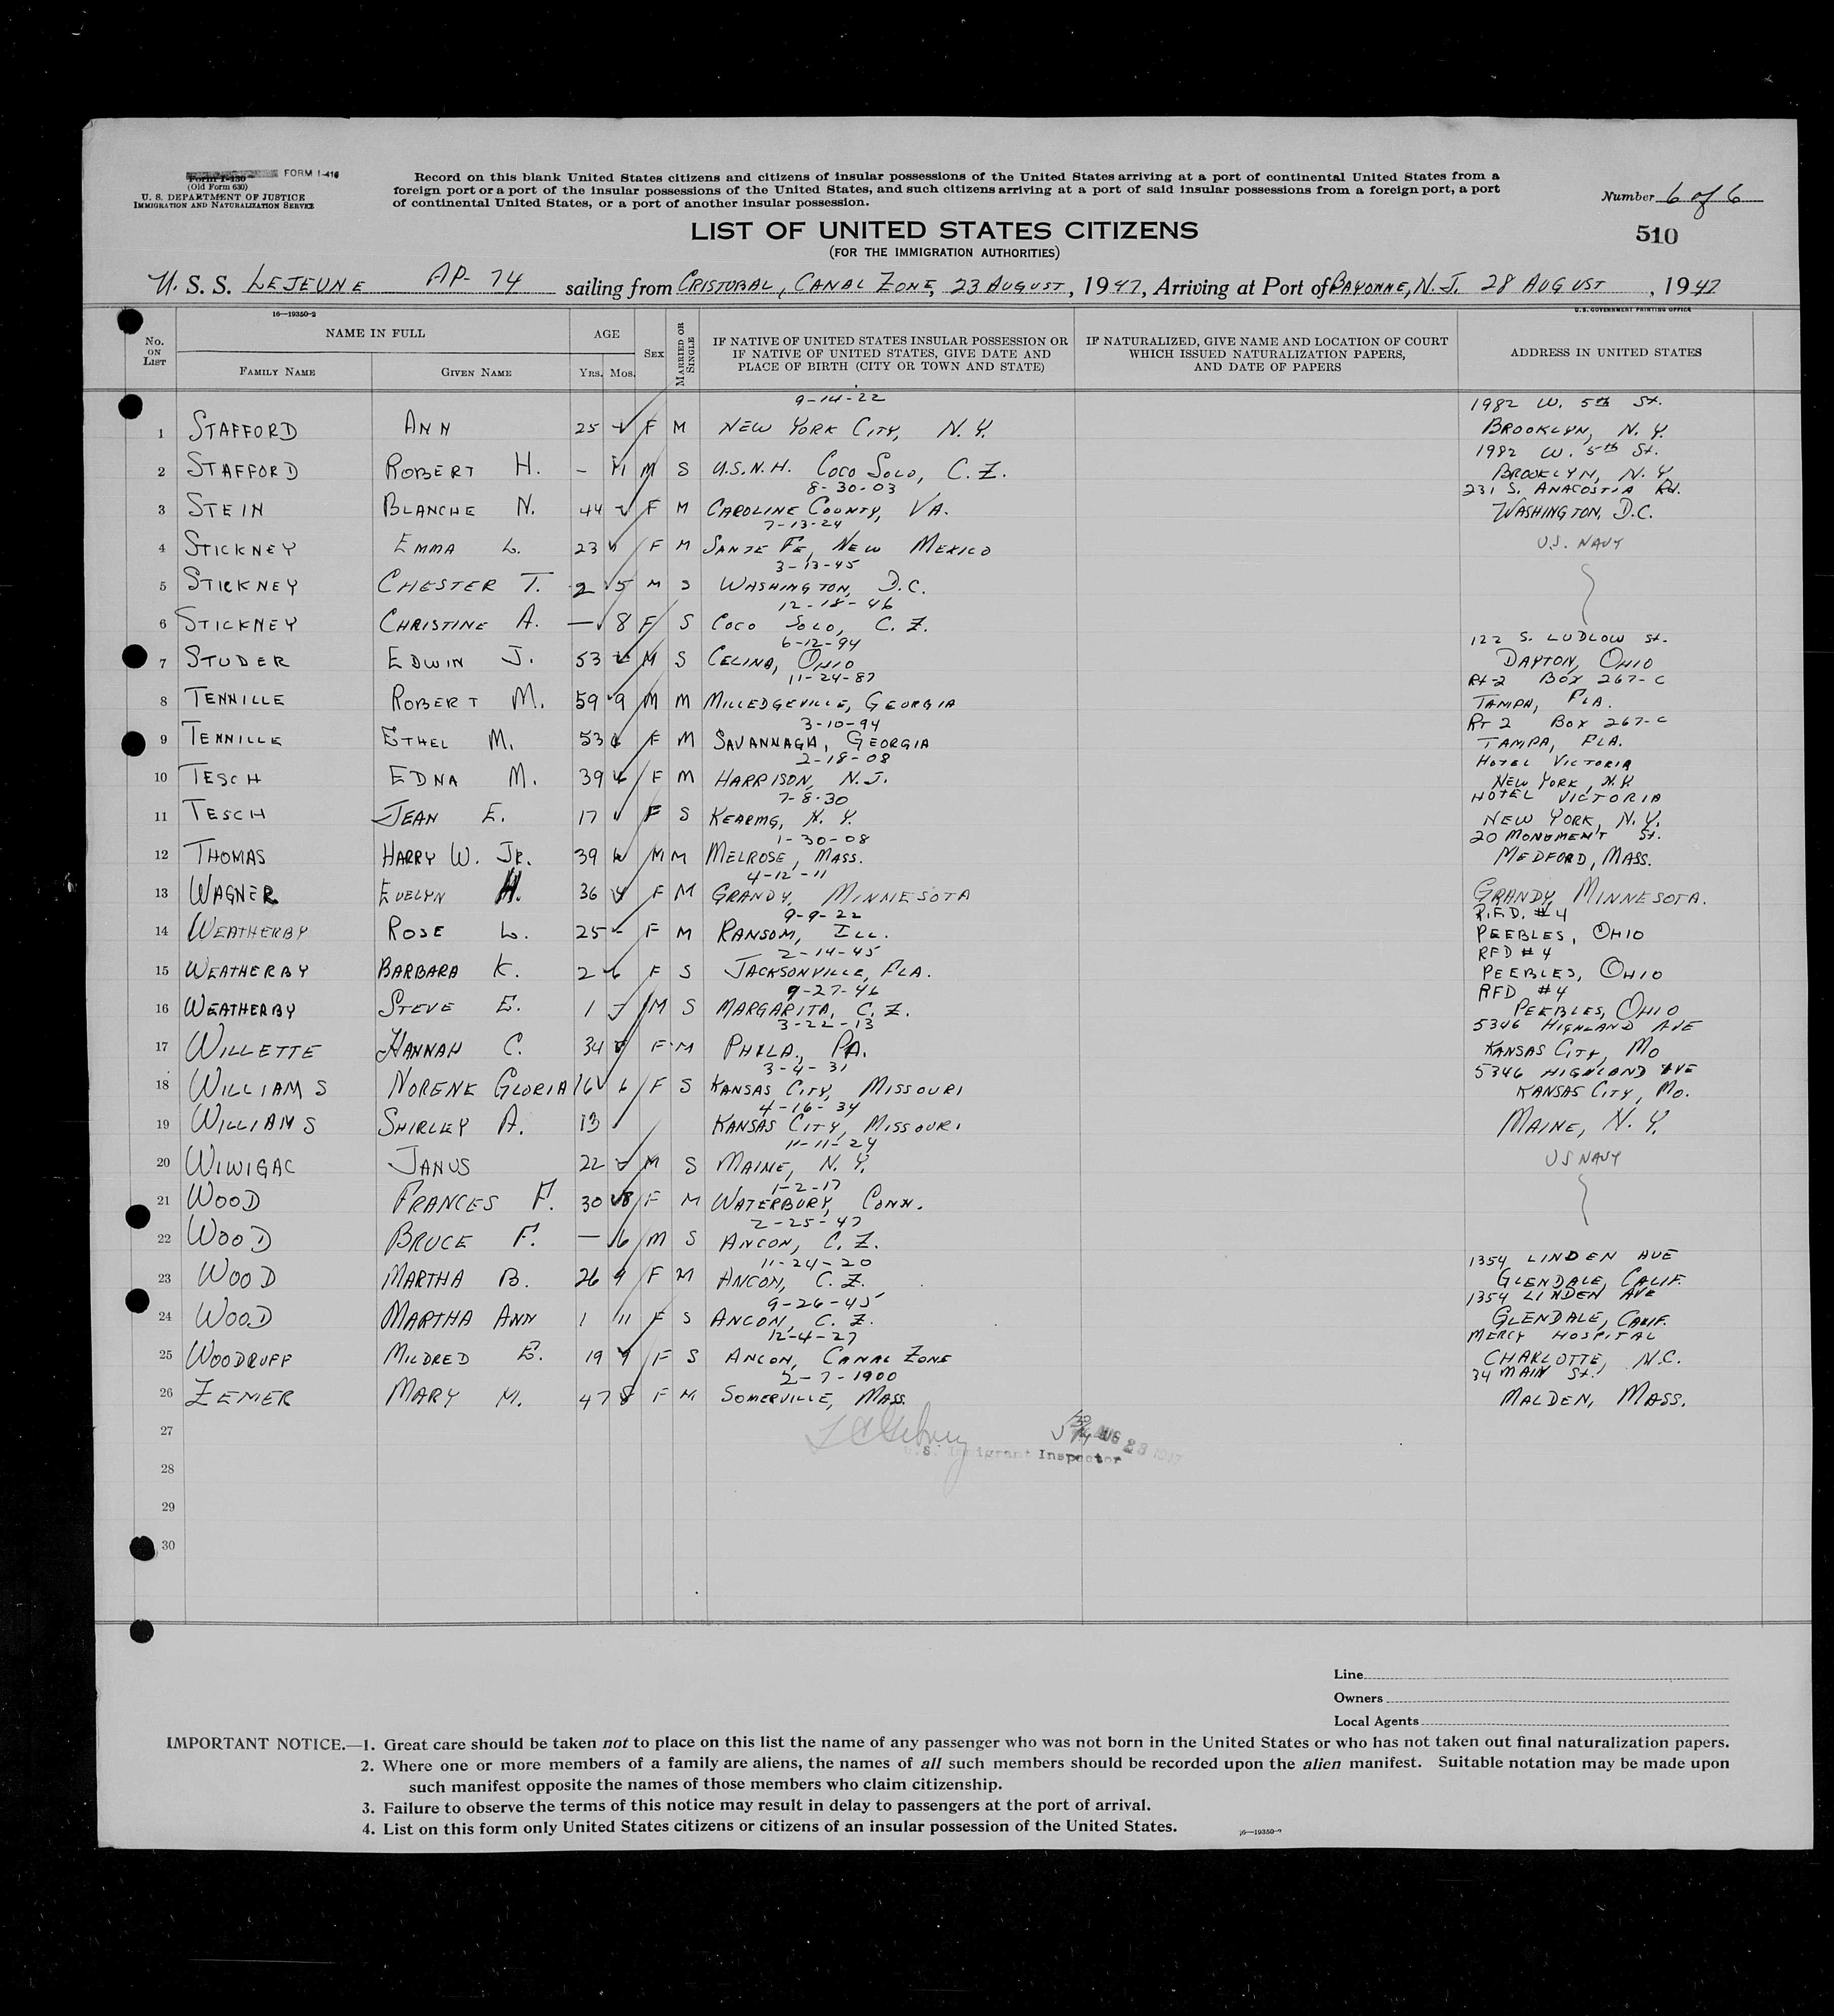 Form I-430 FORM I-416
(Old Form 630)
U. S. DEPARTMENT OF JUSTICE
IMMIGRATION AND NATURALIZATION SERVICE
Record on this blank United States citizens and citizens of insular possessions of the United States arriving at a port of continental United States from a
foreign port or a port of the insular possessions of the United States, and such citizens arriving at a port of said insular possessions from a foreign port, a port
of continental United States, or a port of another insular possession.
Number 6 of 6
510
LIST OF UNITED STATES CITIZENS
(FOR THE IMMIGRATION AUTHORITIES)
U. S. S. LEJEUNE AP-74 sailing from CRISTOBAL, CANAL ZONE, 23 AUGUST, 1947, Arriving at Port of BAYONNE, N.J. 28 AUGUST, 1947
16—19350-2
U. S. GOVERNMENT PRINTING OFFICE
No. ON LIST
NAME IN FULL
FAMILY NAME GIVEN NAME
AGE
YRS. MOS.
SEX
MARRIED OR SINGLE
IF NATIVE OF UNITED STATES INSULAR POSSESSION OR
IF NATIVE OF UNITED STATES, GIVE DATE AND
PLACE OF BIRTH (CITY OR TOWN AND STATE)
IF NATURALIZED, GIVE NAME AND LOCATION OF COURT
WHICH ISSUED NATURALIZATION PAPERS,
AND DATE OF PAPERS
ADDRESS IN UNITED STATES
9-14-22 1982 W. 5th St.
1 STAFFORD ANN 25 F M NEW YORK CITY, N.Y. BROOKLYN, N.Y.
1982 W. 5th St.
2 STAFFORD ROBERT H. - 11 M S U.S.N.H. COCO SOLO, C.Z. BROOKLYN, N.Y.
8-30-03 231 S. ANACOSTIA Rd.
3 STEIN BLANCHE N. 44 F M CAROLINE COUNTY, VA. WASHINGTON, D.C.
7-13-24
4 STICKNEY EMMA L. 23 F M SANTE FE, NEW MEXICO U.S. NAVY
3-13-45
5 STICKNEY CHESTER T. 2 5 M S WASHINGTON, D.C.
12-18-46
6 STICKNEY CHRISTINE A. — 8 F S COCO SOLO, C.Z.
6-12-94 122 S. LUDLOW St.
7 STUDER EDWIN J. 53 M S CELINA, OHIO DAYTON, OHIO
11-24-87 Rt-2 BOX 267-C
8 TENNILLE ROBERT M. 59 9 M M MILLEDGEVILLE, GEORGIA TAMPA, FLA.
3-10-94 RT 2 BOX 267-C
9 TENNILLE ETHEL M. 53 F M SAVANNAGH, GEORGIA TAMPA, FLA.
2-18-08 HOTEL VICTORIA
10 TESCH EDNA M. 39 F M HARRISON, N.J. NEW YORK, N.Y.
7-8-30 HOTEL VICTORIA
11 TESCH JEAN E. 17 F S KEARMG, N.Y. NEW YORK, N.Y.
1-30-08 20 MONUMENT St.
12 THOMAS HARRY W. JR. 39 M M MELROSE, MASS. MEDFORD, MASS.
4-12-11
13 WAGNER EVELYN H. 36 F M GRANDY, MINNESOTA GRANDY, MINNESOTA.
9-9-22 R.F.D. #4
14 WEATHERBY ROSE L. 25 F M RANSOM, ILL. PEEBLES, OHIO
2-14-45 RFD #4
15 WEATHERBY BARBARA K. 2 6 F S JACKSONVILLE, FLA. PEEBLES, OHIO
9-27-46 RFD #4
16 WEATHERBY STEVE E. 1 M S MARGARITA, C.Z. PEEBLES, OHIO
3-22-13 5346 HIGHLAND AVE
17 WILLETTE HANNAH C. 34 F M PHILA., PA. KANSAS CITY, MO
3-4-31 5346 HIGHLAND AVE
18 WILLIAMS NORENE GLORIA 16 6 F S KANSAS CITY, MISSOURI KANSAS CITY, MO.
4-16-34
19 WILLIAMS SHIRLEY A. 13 KANSAS CITY, MISSOURI MAINE, N.Y.
11-11-24
20 WIWIGAC JANUS 22 M S MAINE, N.Y. US NAVY
1-2-17
21 WOOD FRANCES F. 30 8 F M WATERBURY, CONN.
2-25-47
22 WOOD BRUCE F. — 6 M S ANCON, C.Z.
11-24-20 1354 LINDEN AVE
23 WOOD MARTHA B. 26 9 F M ANCON, C.Z. GLENDALE, CALIF.
9-26-45 1354 LINDEN AVE
24 WOOD MARTHA ANN 1 11 F S ANCON, C.Z. GLENDALE, CALIF.
12-4-27 MERCY HOSPITAL
25 WOODRUFF MILDRED E. 19 9 F S ANCON, CANAL ZONE CHARLOTTE, N.C.
2-7-1900 34 MAIN St.
26 ZEMER MARY M. 47 8 F M SOMERVILLE, MASS. MALDEN, MASS.
27
AUG 28 1947
U.S. Immigrant Inspector
28
29
30
Line
Owners
Local Agents
IMPORTANT NOTICE.—1. Great care should be taken not to place on this list the name of any passenger who was not born in the United States or who has not taken out final naturalization papers.
2. Where one or more members of a family are aliens, the names of all such members should be recorded upon the alien manifest. Suitable notation may be made upon
such manifest opposite the names of those members who claim citizenship.
3. Failure to observe the terms of this notice may result in delay to passengers at the port of arrival.
4. List on this form only United States citizens or citizens of an insular possession of the United States.
16—19350-2